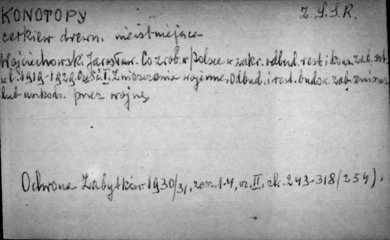 KONOTOPY Z.S.S.R.
cerkiew drewn. nieistniejąca
Wojciechowski Jarosław. Co zrob. w Polsce w zakr. odbud. rest. i kons. zab. szt.
w l. 1919-1929. Część I. Zniszczenia wojenne. Odbud. i rest. budow. zab. zniszcz.
lub uszkodz. przez wojnę,
Ochrona Zabytków 1930/31, zesz. 1-4, cz. II, str. 243-318 (254).